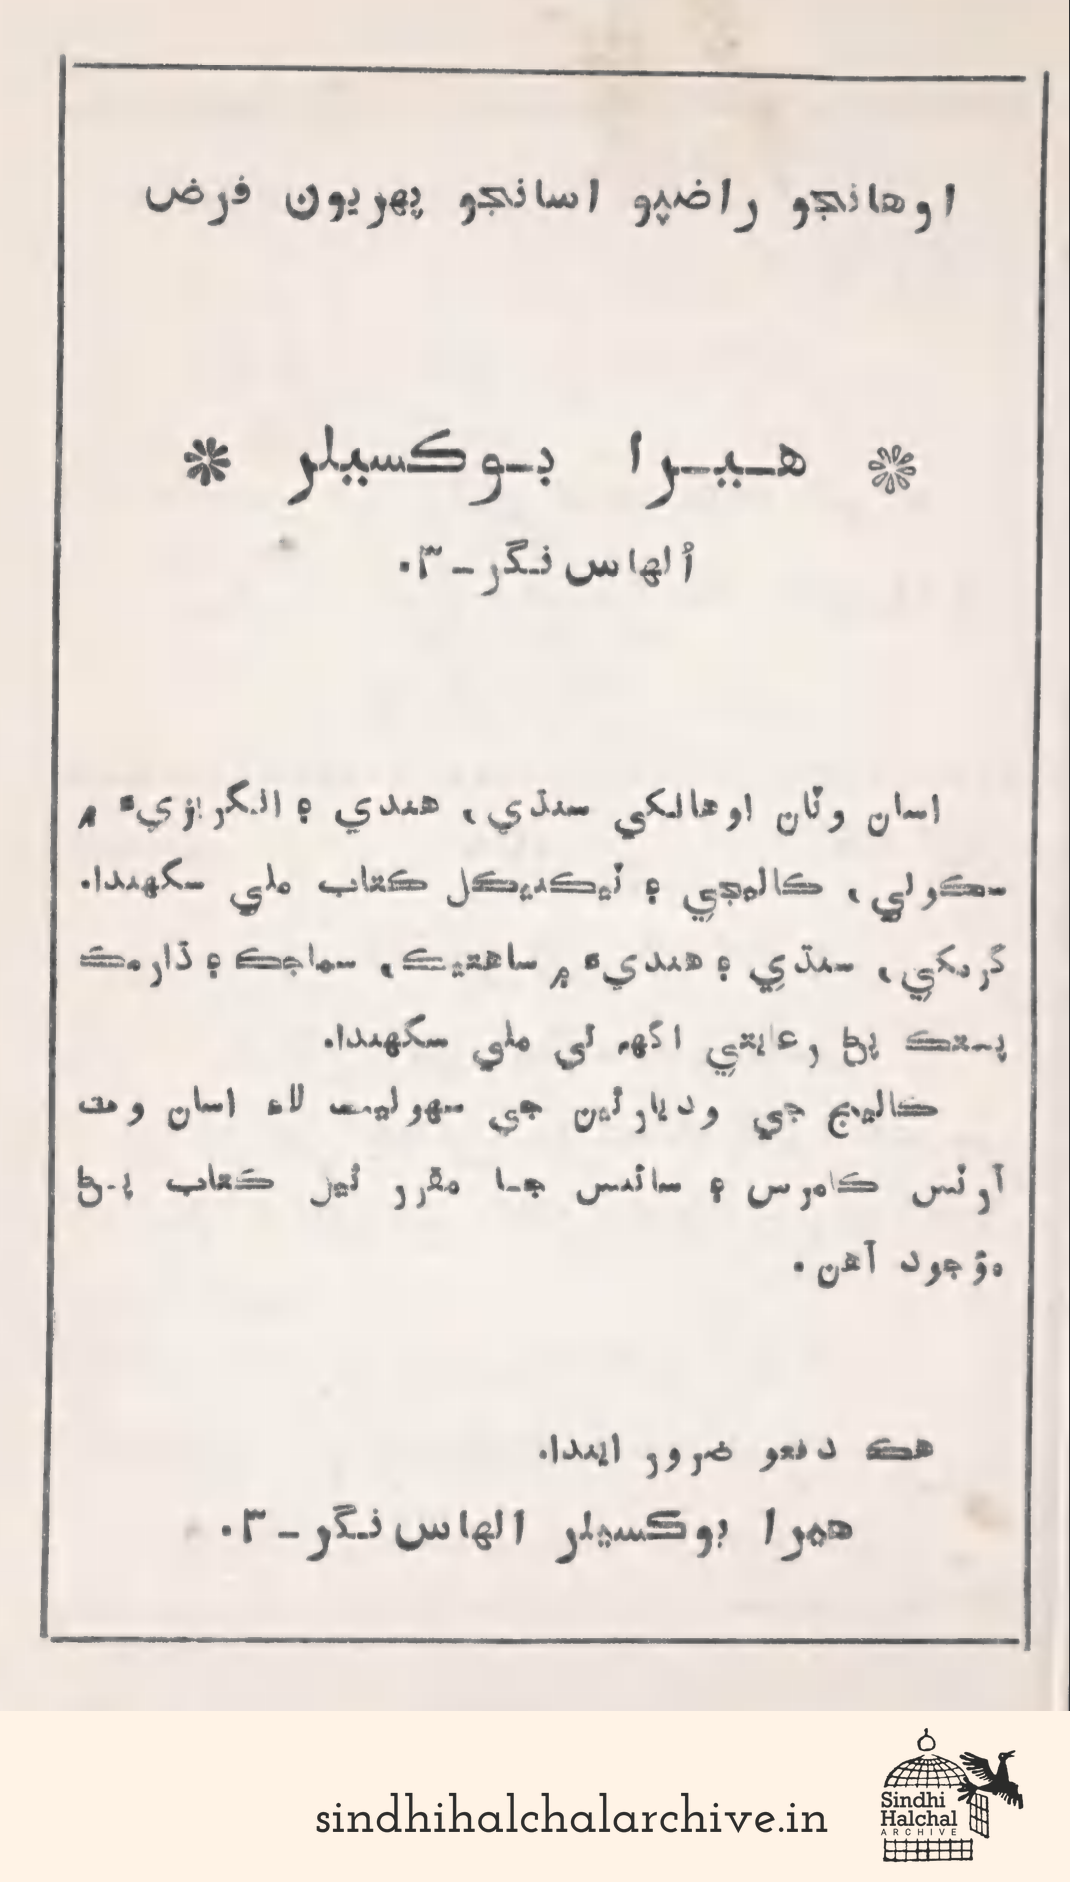 اوهانجو راضپو اسانجو پهريون فرض
هيرا بوڪسيلر
اُلهاس نگر-٣.
اسان وٽان اوهانکي سنڌي، هندي ۽ انگريزيءَ ۾
سڪولي، ڪاليجي ۽ ٽيڪنيڪل ڪتاب ملي سگهندا.
گرمکي، سنڌي ۽ هنديءَ ۾ ساهتيڪ، سماجڪ ۽ ڌارمڪ
پستڪ پڻ رعايتي اگهہ تي ملي سگهندا.
ڪاليج جي وديارٿين جي سهوليت لاءِ اسان وٽ
آرٽس ڪامرس ۽ سائنس جا مقرر ٿيل ڪتاب پڻ
موجود آهن.
هڪ دفعو ضرور ايندا.
هيرا بوڪسيلر الهاس نگر-٣.
sindhihalchalarchive.in
Sindhi
Halchal
ARCHIVE